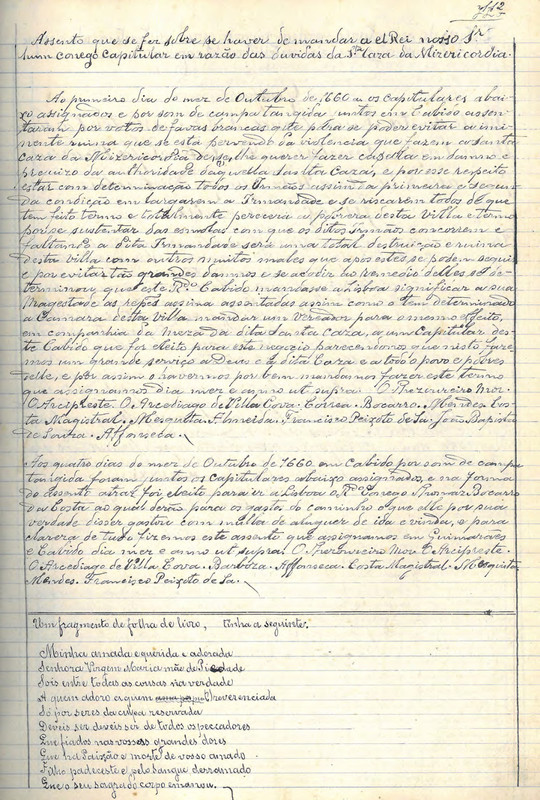 Assento que se fes sobre se haver de mandar a el Rei nosso Sr.
hum conego capitular em razão das duvidas da Sta. Caza da Mizericordia.
Ao primeiro dia do mez de Outubro de 1660 a os capitulares abai-
xo assignados e por som de campa tangida juntos em Cabido assen-
taram por votos de favas brancas que para se poder evitar a imi-
nente ruina que se está pervendo da violencia que fazem a santa
caza da Mizericordia de se lhe querer fazer capella em damno e
prejuizo da authoridade daquella Santta Caza, e por esse respeito
estar com determinação todos os Irmãos assim da primeira e segun-
da condição em largarem a Irmandade e se riscarem todos de que
tem feito termo e totalmente perecerá a pobreza desta villa e termo
por se sustentar das esmolas com que os ditos Irmãos concorrem e
faltando a esta Irmandade será uma total destruição e ruina
desta villa com outros muitos males que apos estes se podem seguir
e por evitar tão grandes damnos e se acodir ao remedio delles se de-
terminou que este Rdo. Cabido mandasse a Lisboa significar a sua
Magestade as rezões assima assentadas assim como o tem determinado
a Camara desta villa mandar um vereador para o mesmo effeito,
em companhia da Meza da dita Santa Caza, a um Capitular des-
te Cabido que for eleito para este negocio parecendonos que nisto faze-
mos um grande serviço a Deus e á dita Caza e a todo o povo e pobres
delle, e por assim o havermos por bem mandamos fazer este termo
que assignamos dia mez e anno ut supra. O Thezoureiro Mor.
O Arcipreste. O Arcediago de Villa Cova. Correa. Bocarro. Mendes. Cos-
ta Magistral. Mesquita. Almeida. Francisco Peixoto de Sa. João Baptista
de Souza. Affonseca.
Aos quatro dias do mez de Outubro de 1660 em Cabido por som de campa
tangida foram juntos os Capitulares abaixo assignados, e na forma
do assento atraz foi eleito para ir a Lisboa o Rdo. Conego Thomaz Bocarro
da Costa ao qual derão para os gastos do caminho o que elle por sua
verdade disser gastou com mulla de aluguer de ida e vinda, e para
clareza de tudo fizemos este assento que assignamos em Guimarães
e Cabido dia mez e anno ut supra. O Thezoureiro Mor. O Arcipreste.
O Arcediago de Villa Cova. Barboza. Affonseca. Costa Magistral. Mesquita
Mendes. Francisco Peixoto de Sa.
Um fragmento de folha do livro, tinha a seguinte:
Minha amada e querida e adorada
Senhora Virgem Maria mãe de Piedade
Sois entre todas as cousas na verdade
A quem adoro a quem reverenciada
Só por seres da culpa reservada
Deveis ser deveis ser de todos os peccadores
Que fiados nas vossas grandes dores
Que na Paixão e morte de vosso amado
Filho padeceste e pelo sangue derramado
Que o seu sagrado corpo emanou.